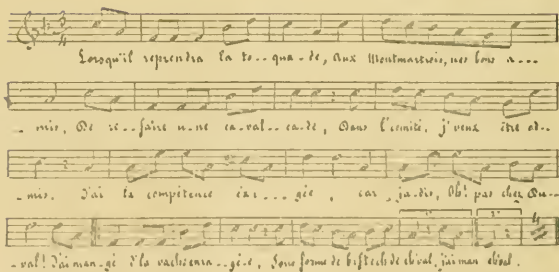 Lorsqu'il reprendra la to--qua-de, Aux Montmartrois, nos bons a---
- mis, De re--faire u-ne ca-val--ca-de, Dans l'comité, j'veux être ad--
- mis. J'ai la compétence exi---gée, car ja-dis, Oh! pas cher Du--
- val! J'ai man-gé d'la vache enra--gé-e, Sous forme de bifteck de ch'val, j'ai man ch'val.